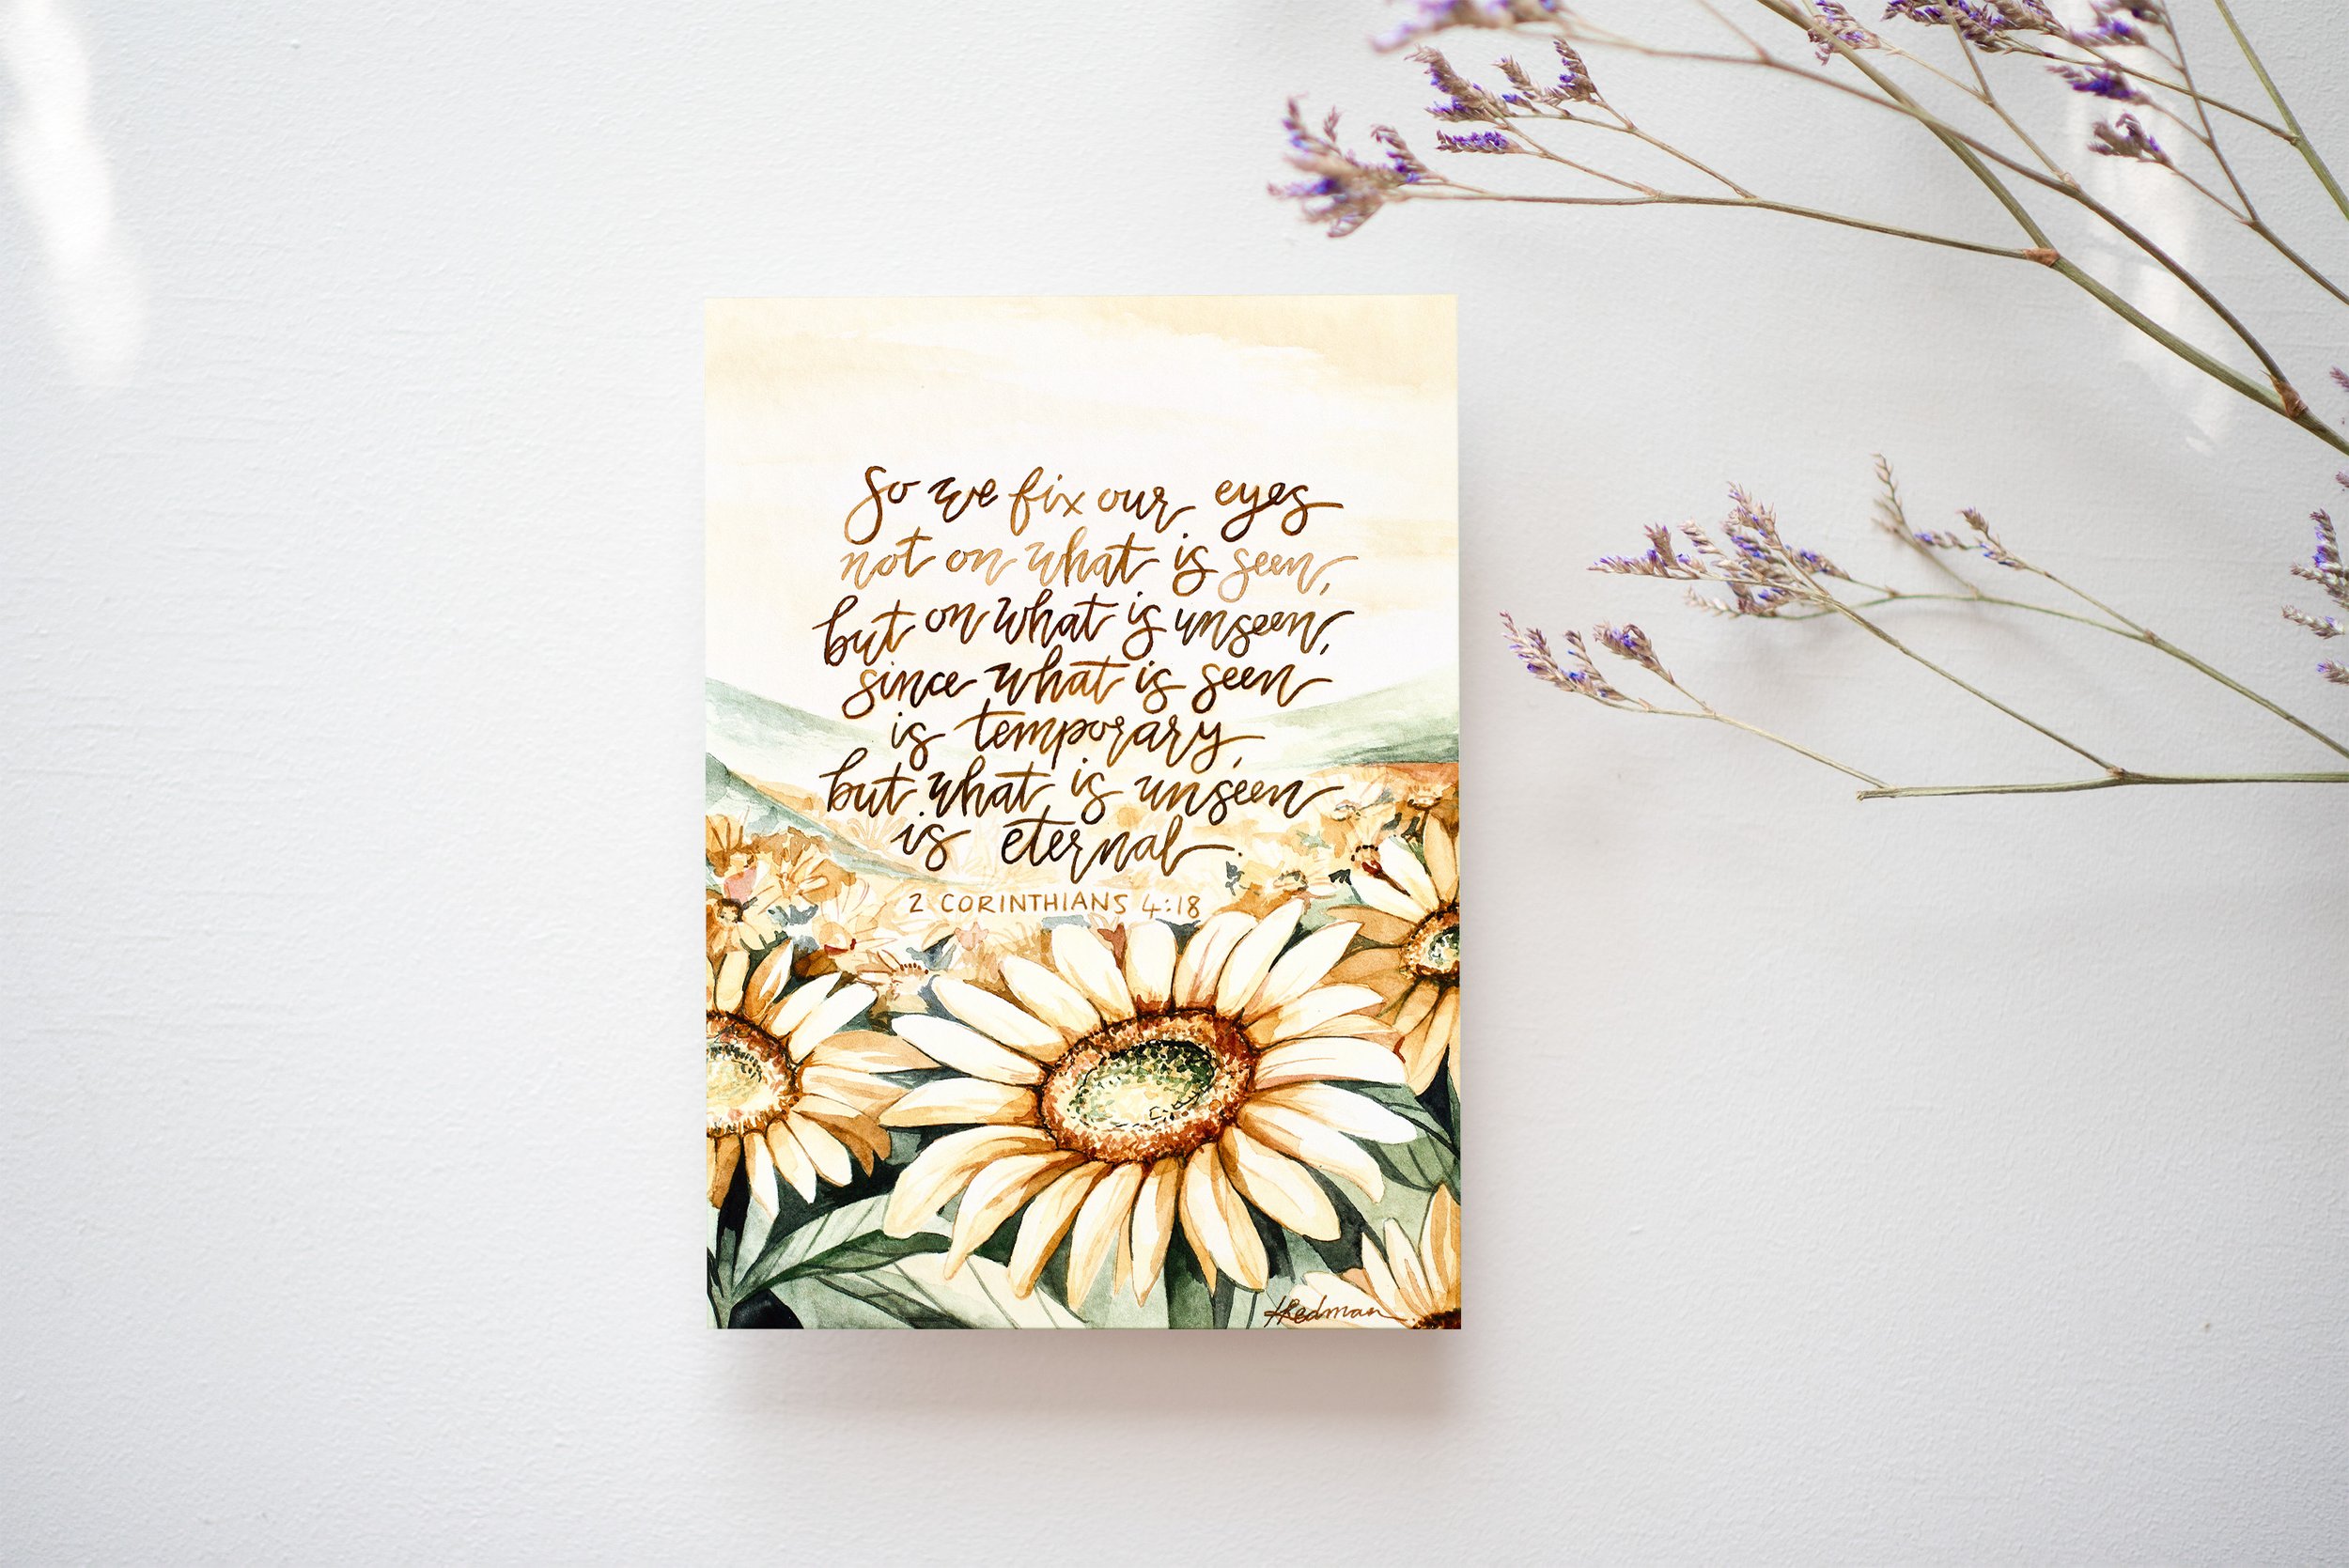 So we fix our eyes
not on what is seen,
but on what is unseen,
since what is seen
is temporary,
but what is unseen
is eternal.
2 CORINTHIANS 4:18
HRedman